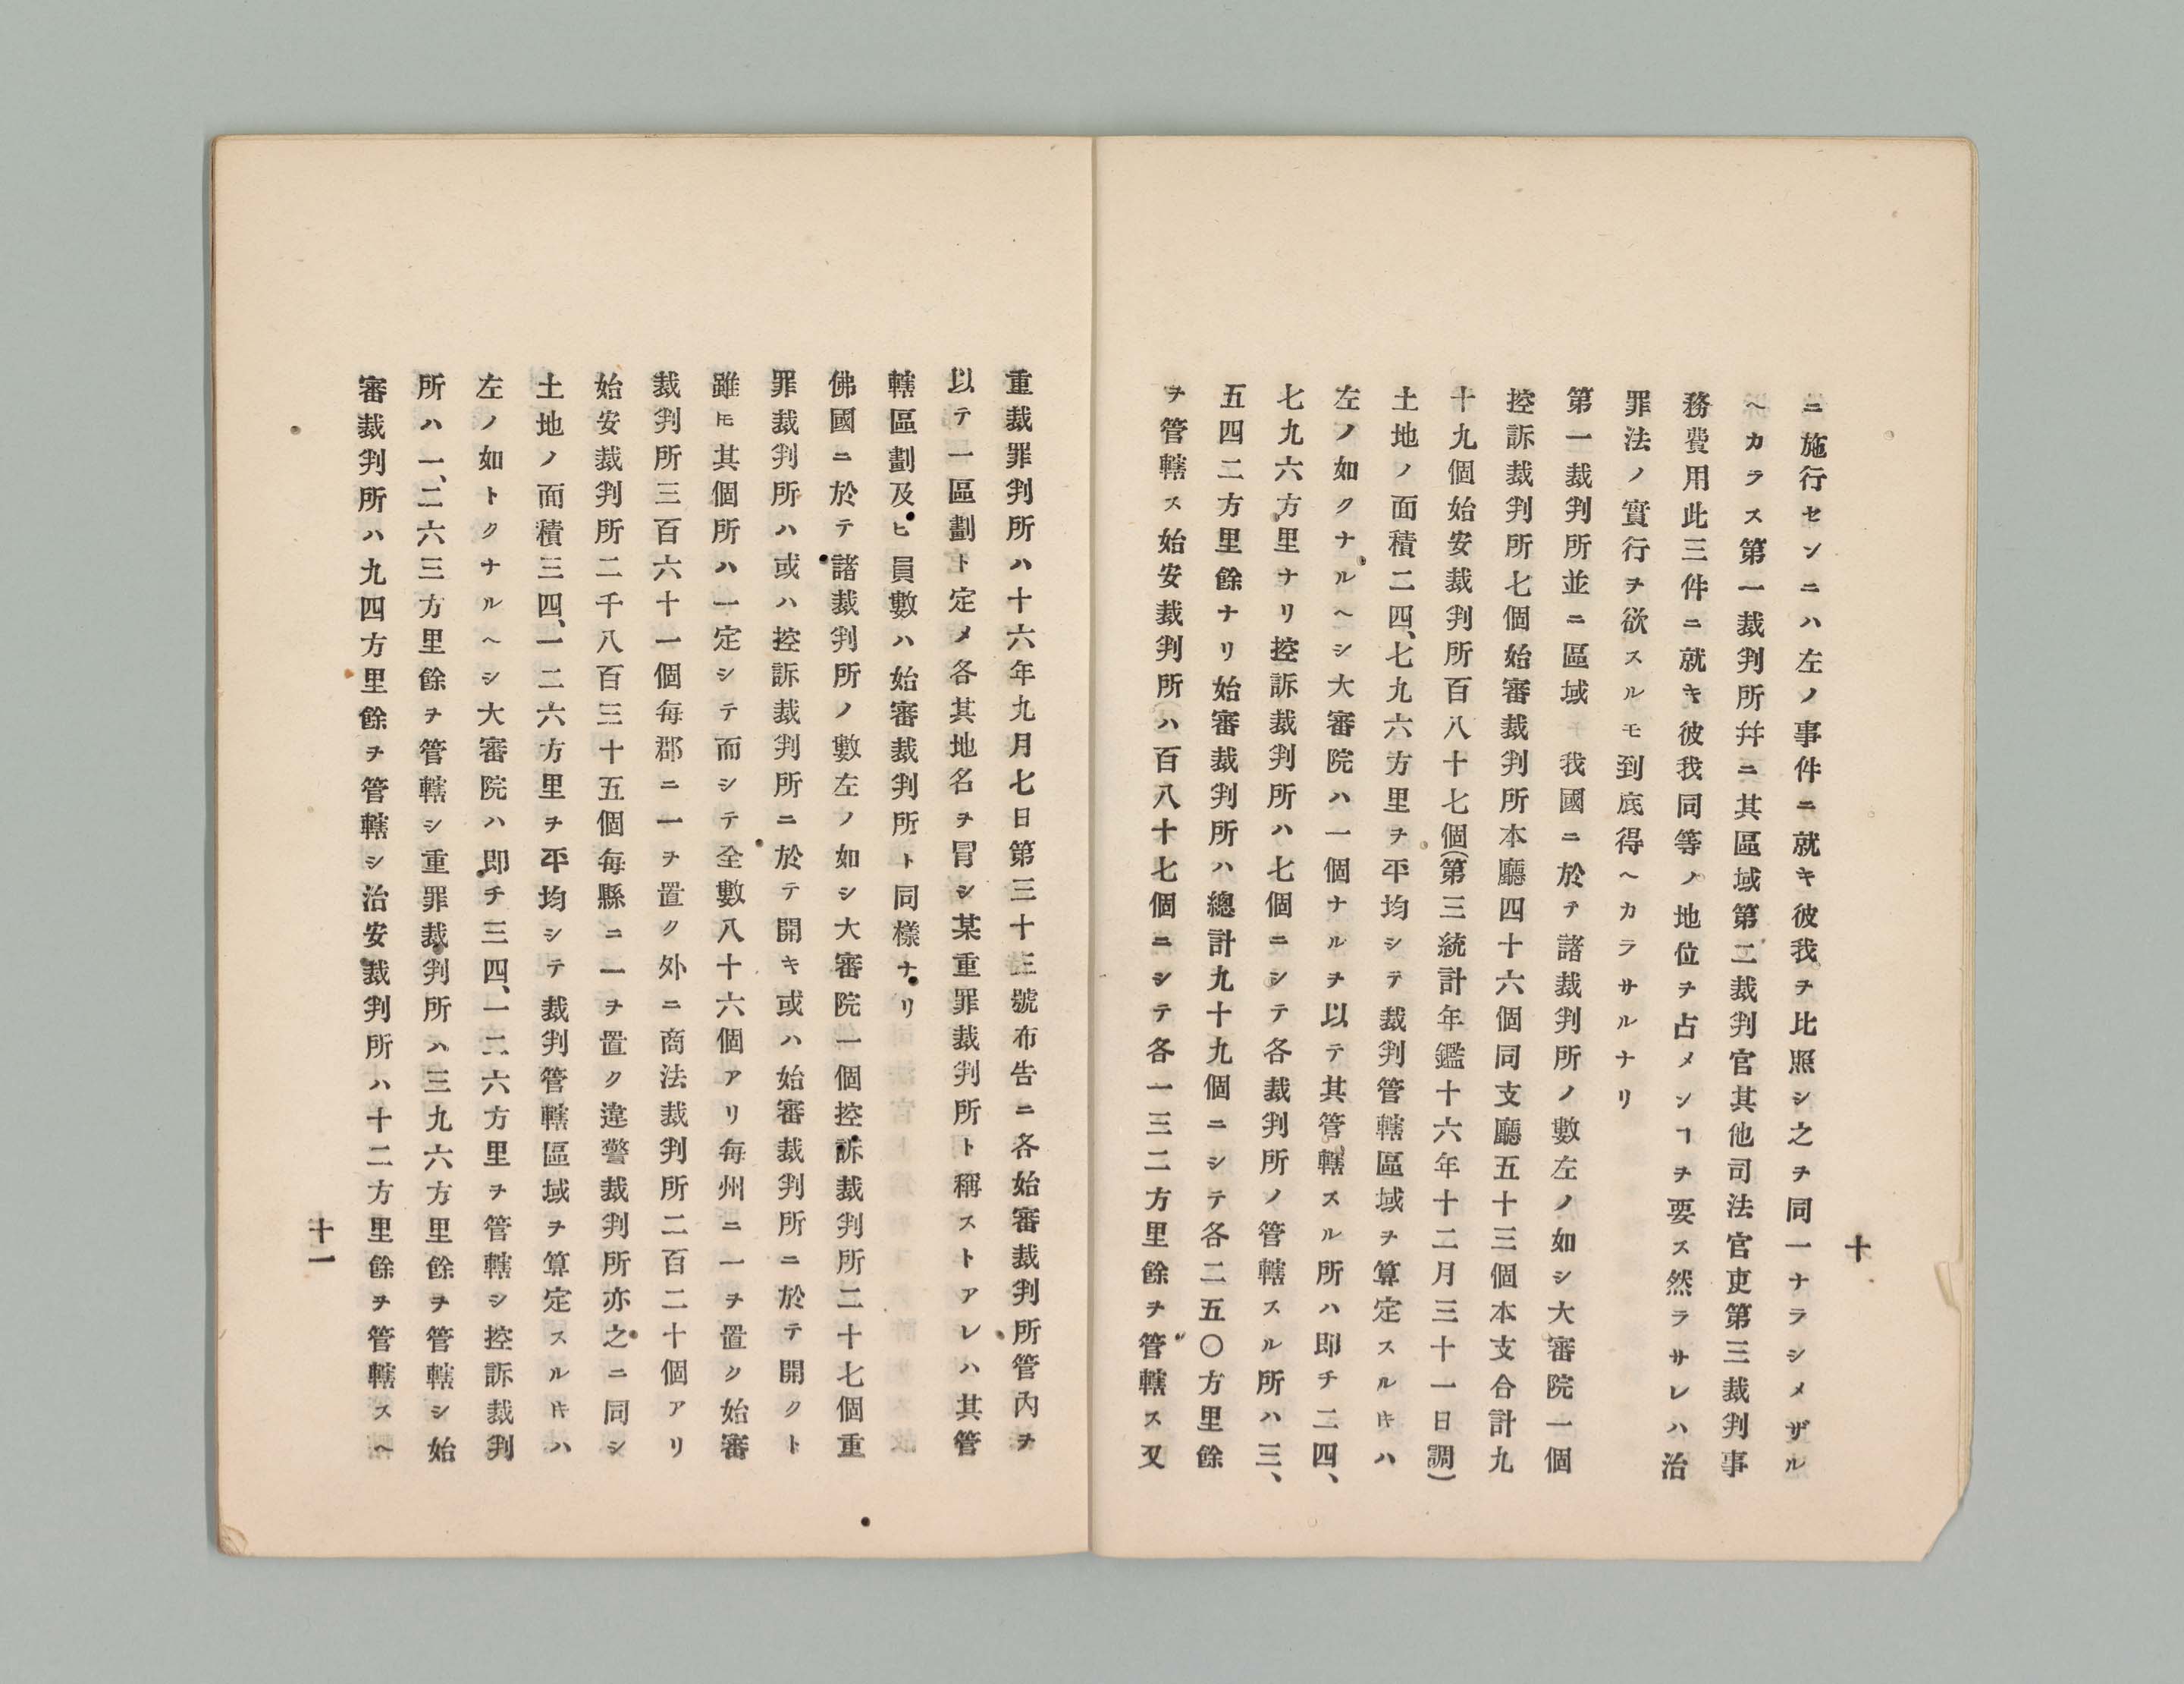 十
ニ施行センニハ左ノ事件ニ就キ彼我ヲ比照シ之ヲ同一ナラシメザル
ヘカラス第一裁判所幷ニ其區域第二裁判官其他司法官吏第三裁判事
務費用此三件ニ就キ彼我同等ノ地位ヲ占メシヿヲ要ス然ラサレハ治
罪法ノ實行ヲ欲スルモ到底得ヘカラサルナリ
第一裁判所並ニ區域　我國ニ於テ諸裁判所ノ數左ノ如シ大審院一個
控訴裁判所七個始審裁判所本廳四十六個同支廳五十三個本支合計九
十九個始安裁判所百八十七個(第三統計年鑑十六年十二月三十一日調)
土地ノ面積二四、七九六方里ヲ平均シテ裁判管轄區域ヲ算定スルㇳキハ
左ノ如クナルヘシ大審院ハ一個ナルヲ以テ其管轄スル所ハ即チ二四、
七九六方里ナリ控訴裁判所ハ七個ニシテ各裁判所ノ管轄スル所ハ三、
五四二方里餘ナリ始審裁判所ハ總計九十九個ニシテ各二五〇方里餘
ヲ管轄ス始安裁判所ハ百八十七個ニシテ各一三二方里餘ヲ管轄ス又
重裁罪判所ハ十六年九月七日第三十三號布告ニ各始審裁判所管內ヲ
以テ一區劃ト定メ各其地名ヲ冒シ某重罪裁判所ト稱ストアレハ其管
轄區劃及ヒ員數ハ始審裁判所ト同樣ナリ
佛國ニ於テ諸裁判所ノ數左ノ如シ大審院一個控訴裁判所二十七個重
罪裁判所ハ或ハ控訴裁判所ニ於テ開キ或ハ始審裁判所ニ於テ開クト
雖ㇳモ其個所ハ一定シテ而シテ全數八十六個アリ每州ニ一ヲ置ク始審
裁判所三百六十一個每郡ニ一ヲ置ク外ニ商法裁判所二百二十個アリ
始安裁判所二千八百三十五個每縣ニ一ヲ置ク違警裁判所亦之ニ同シ
土地ノ面積三四、一二六方里ヲ平均シテ裁判管轄區域ヲ算定スルㇳキハ
左ノ如トクナルヘシ大審院ハ即チ三四、一二六方里ヲ管轄シ控訴裁判
所ハ一、二六三方里餘ヲ管轄シ重罪裁判所ハ三九六方里餘ヲ管轄シ始
審裁判所ハ九四方里餘ヲ管轄シ治安裁判所ハ十二方里餘ヲ管轄スヘ
十一